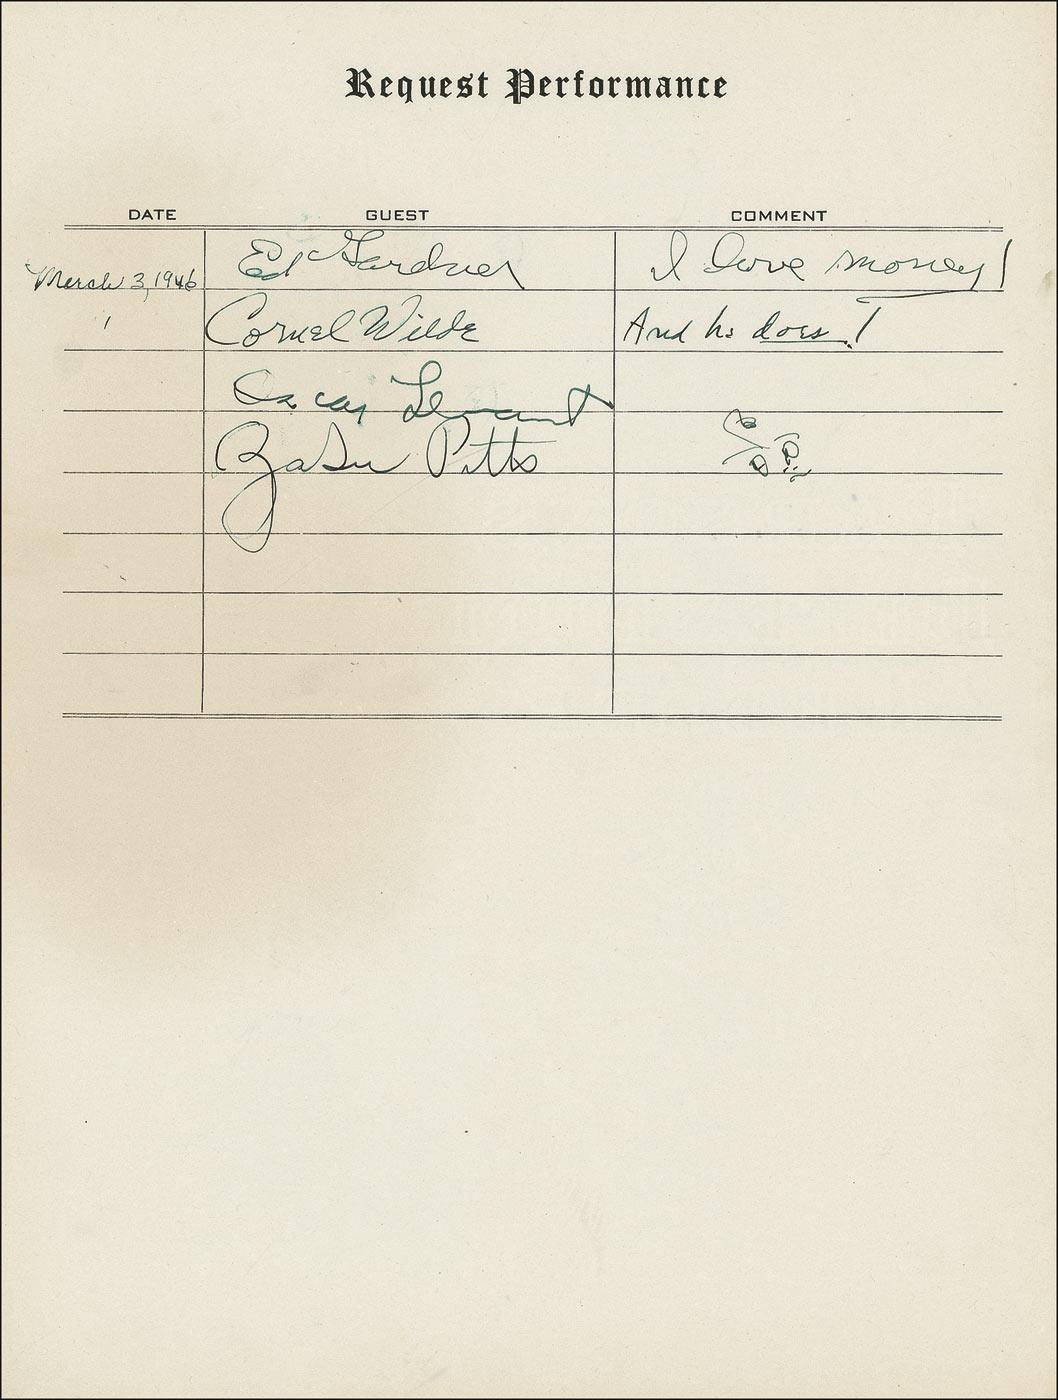 Request Performance
DATE GUEST COMMENT
March 3, 1946 Ed Gardner I love money!
Cornel Wilde And he does!
Oscar Levant
ZaSu Pitts